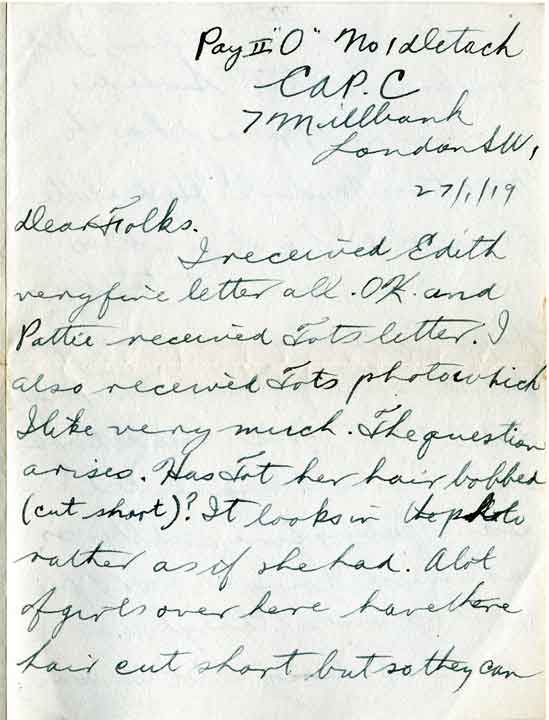 Pay II "O" No 1 detach
C.A.P.C
7 Millbank
London S.W.1
27/1/19
Dear Folks.
I received Edith
very fine letter all. OK. and
Pattie received Tots letter. I
also received Tots photo which
I like very much. The question
arises. Has Tot her hair bobbed
(cut short)? It looks in the photo
rather as if she had. A lot
of girls over here have there
hair cut short but so they can